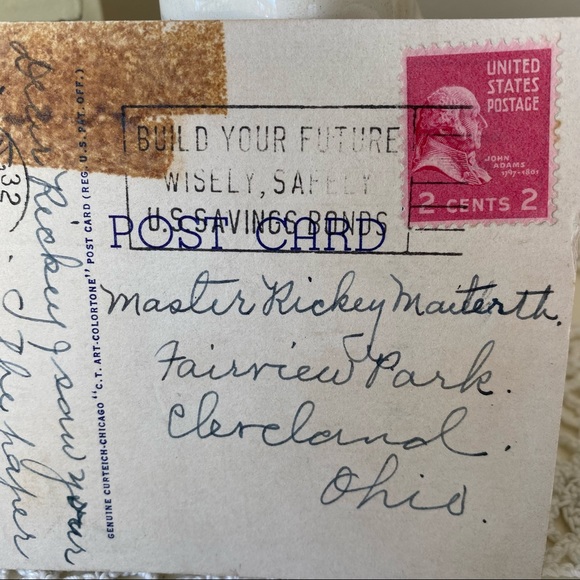 BUILD YOUR FUTURE
WISELY, SAFELY
U.S. SAVINGS BONDS
UNITED
STATES
POSTAGE
JOHN
ADAMS
1797-1801
2 CENTS 2
POST CARD
Master Rickey
Fairview Park.
Cleveland.
Ohio.
GENUINE CURTEICH-CHICAGO "C.T. ART-COLORTONE" POST CARD (REG. U.S. PAT. OFF.)
Dear Rickey I saw your
the paper